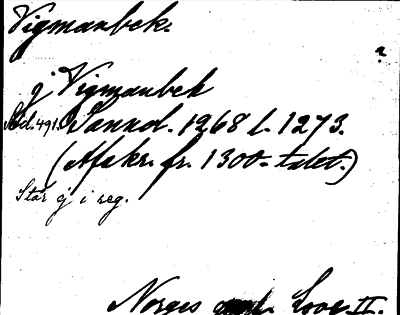 Vigmanbek.
?
j Vigmanbek
Sdd. 491. Sannol. 1268 l. 1273.
(Afskr. fr. 1300-talet.)
Står ej i reg.
Norges Love II.